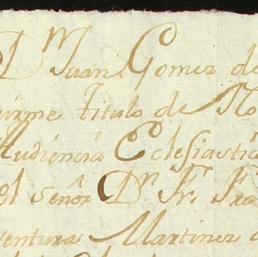 Dⁿ Juan Gomez de
uirme titulo de No
Audiencia Eclesiastic
el señor Dʳ Fr. Fra
ventura Martinez